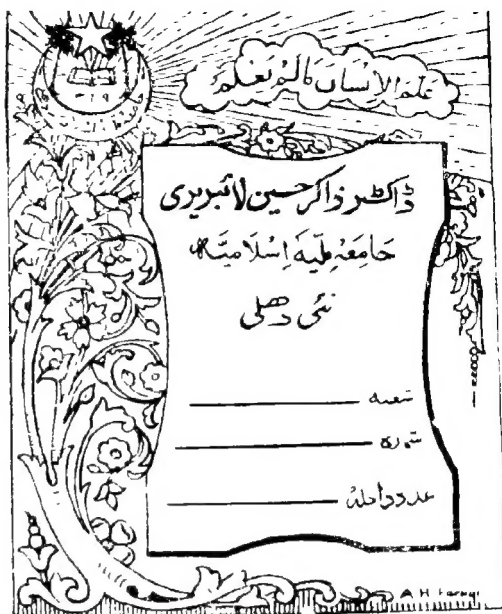 علم الإنسان ما لم يعلم
ڈاکٹر ذاکر حسین لائبریری
جامعہ ملیہ اسلامیہ
نئی دھلی
شعبہ
شمارہ
عدد داخلہ
A H Faruqi